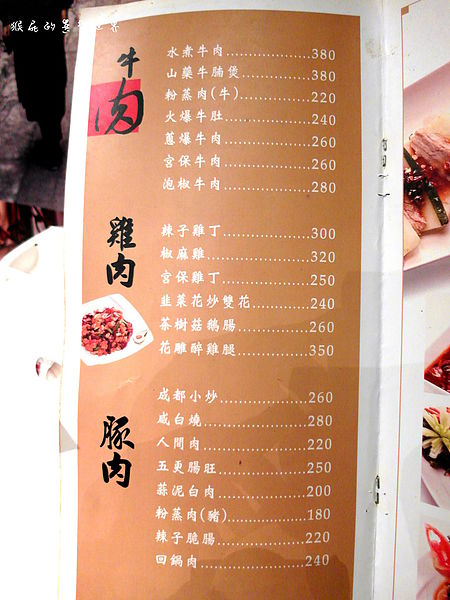 牛肉
水煮牛肉....................380
山藥牛腩煲................380
粉蒸肉(牛)................220
火爆牛肚....................240
蔥爆牛肉....................260
宮保牛肉....................260
泡椒牛肉....................280
雞肉
辣子雞丁....................300
椒麻雞........................320
宮保雞丁....................250
韭菜花炒雙花............240
茶樹菇鵝腸................260
花雕醉雞腿................350
豚肉
成都小炒....................260
咸白燒........................280
人間肉........................220
五更腸旺....................250
蒜泥白肉....................200
粉蒸肉(豬)..................180
辣子脆腸....................220
回鍋肉........................240